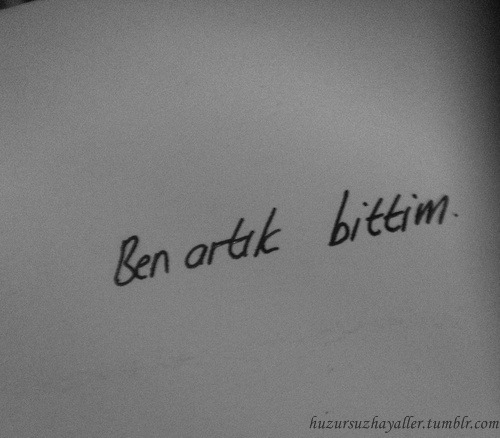 Ben artık bittim.
huzursuzhayaller.tumblr.com